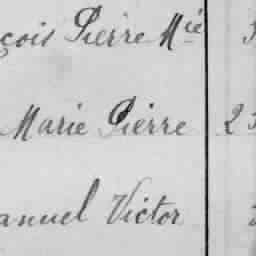 çois Pierre Mie
Marie Pierre 2
anuel Victor